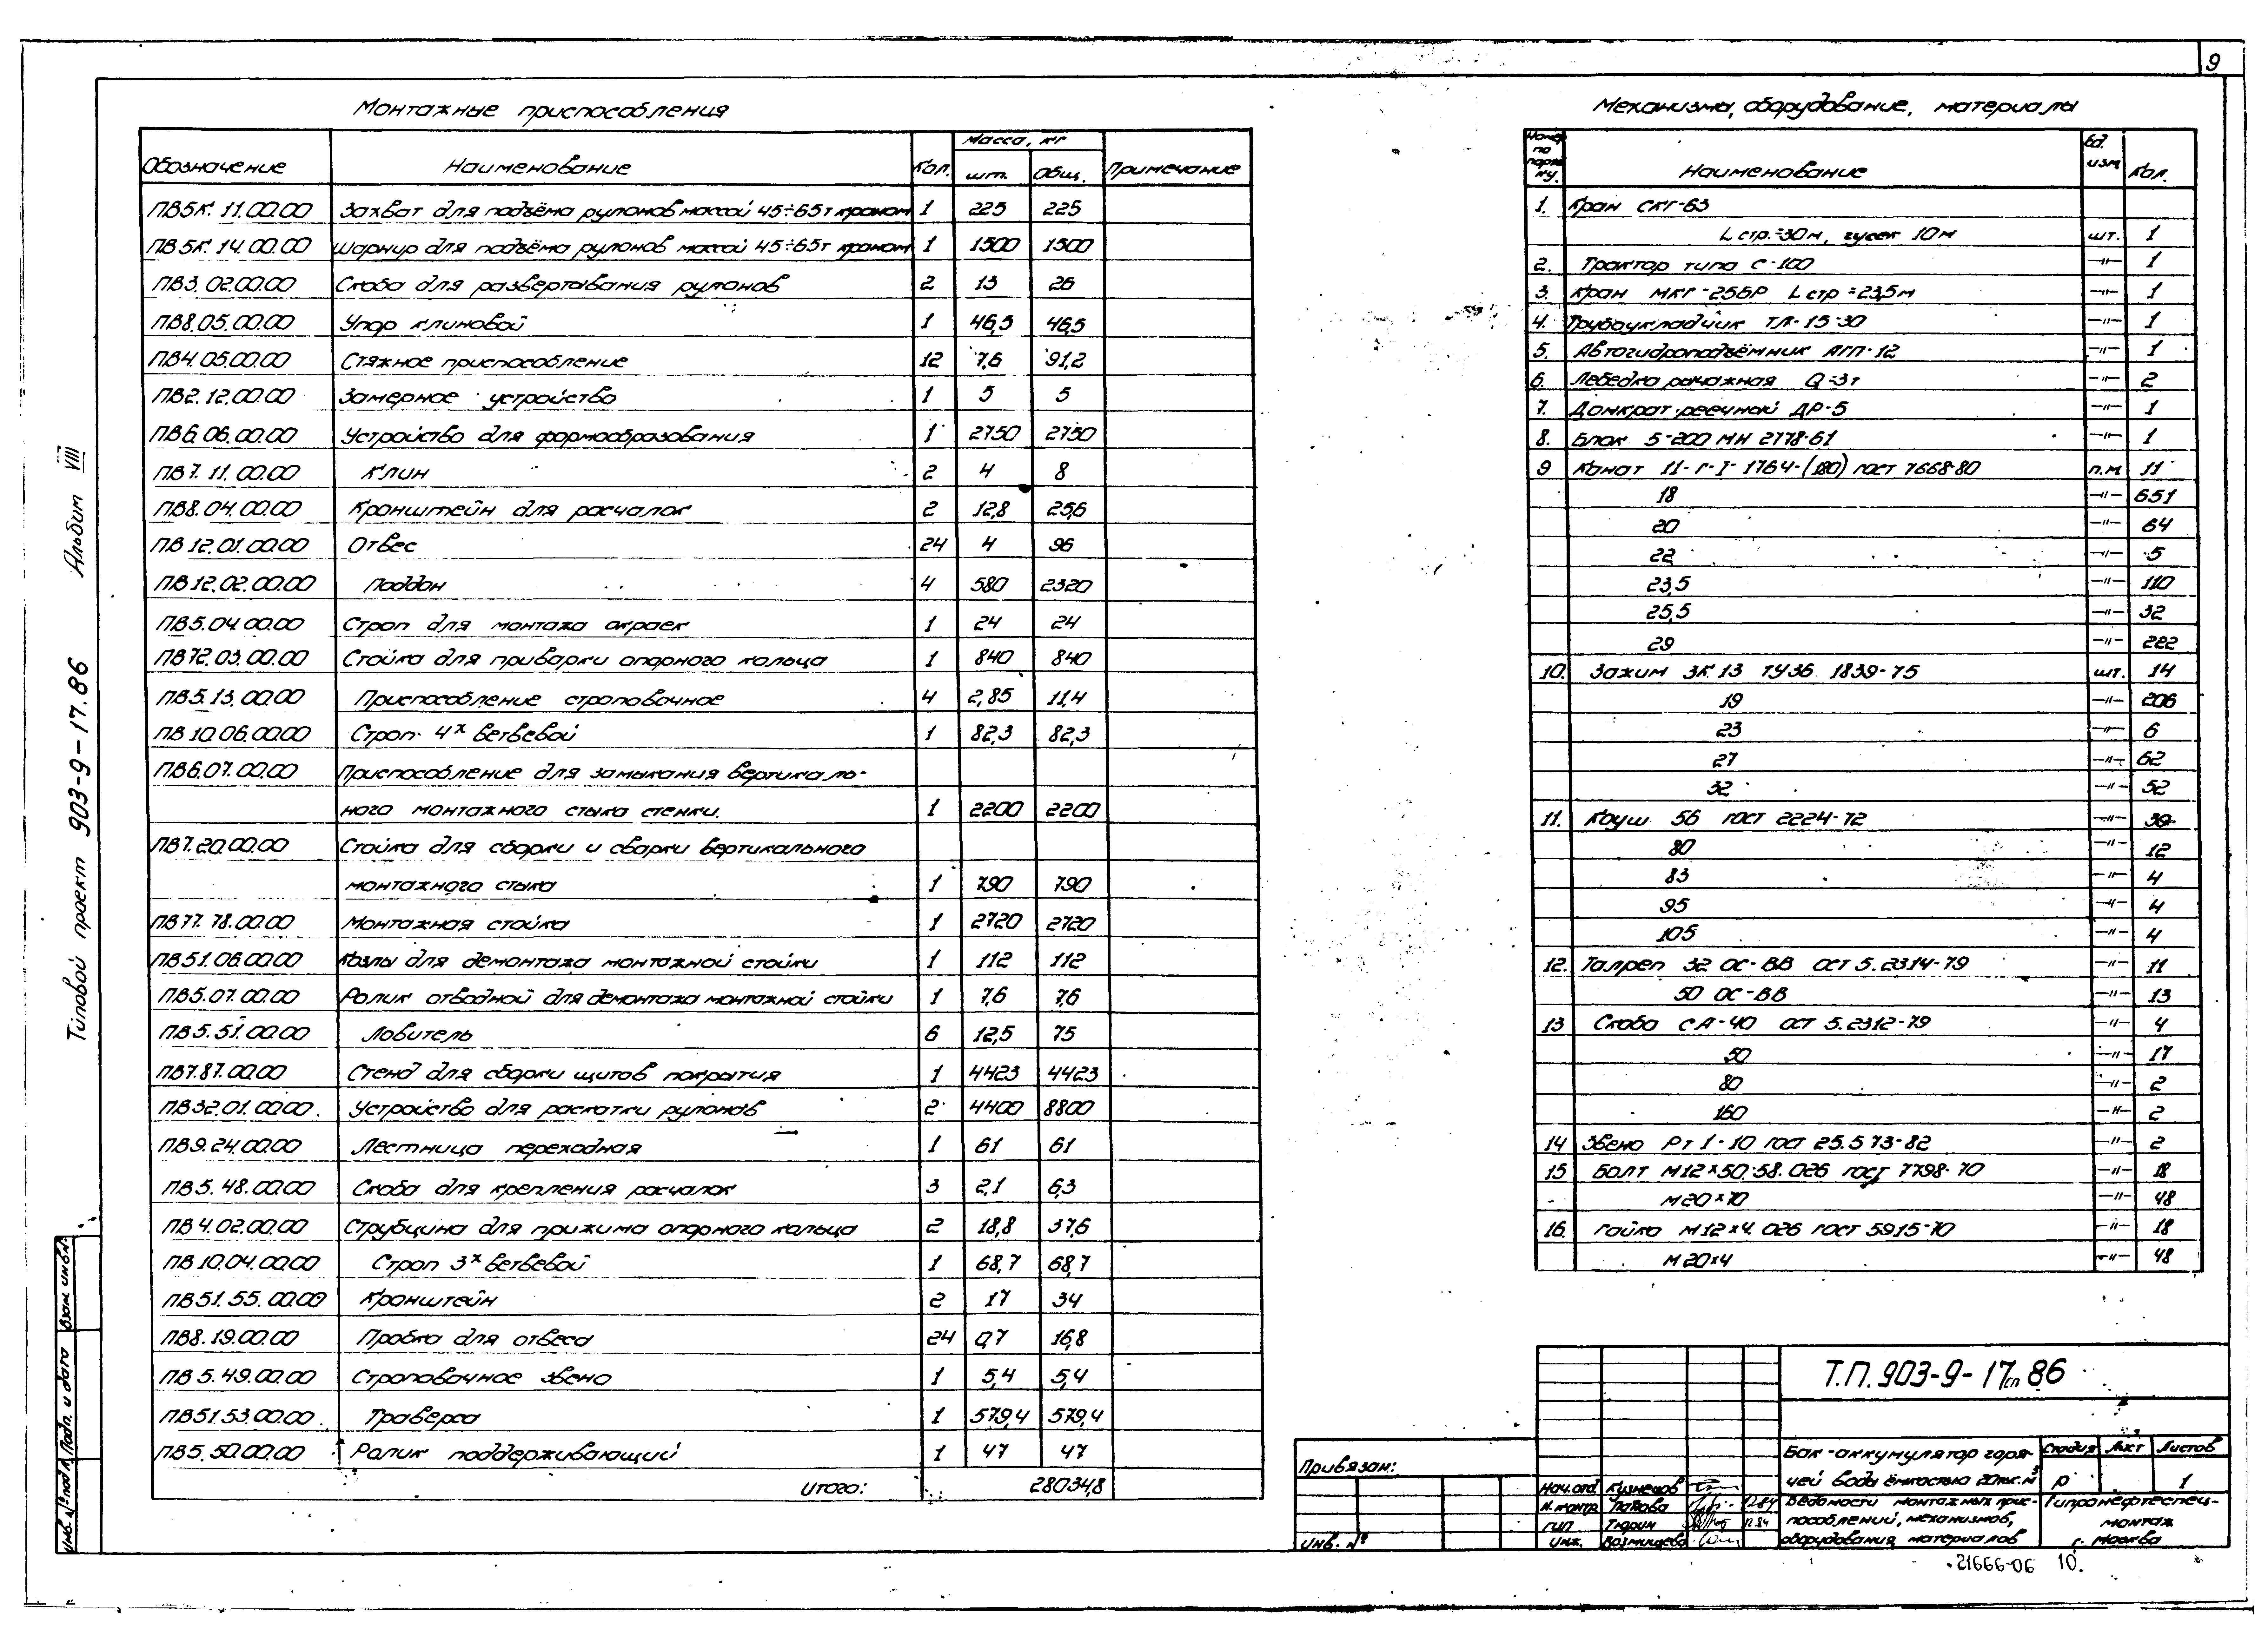 9
Монтажные приспособления
Обозначение Наименование Кол. Масса, кг Примечание
шт. Общ.
ПВ5К. 11.00.00 Захват для подъёма рулонов массой 45÷65т краном 1 225 225
ПВ5К. 14.00.00 Шарнир для подъёма рулонов массой 45÷65т краном 1 1500 1500
ПВ3.02.00.00 Скоба для развертывания рулонов 2 13 26
ПВ8.05.00.00 Упор клиновой 1 46,5 46,5
ПВ4.05.00.00 Стяжное приспособление 12 7,6 91,2
ПВ2.12.00.00 Замерное устройство 1 5 5
ПВ6.06.00.00 Устройство для формообразования 1 2750 2750
ПВ7.11.00.00 Клин 2 4 8
ПВ8.04.00.00 Кронштейн для расчалок 2 12,8 25,6
ПВ12.01.00.00 Отвес 24 4 96
ПВ12.02.00.00 Поддон 4 580 2320
ПВ5.04.00.00 Строп для монтажа окраек 1 24 24
ПВ72.03.00.00 Стойка для приварки опорного кольца 1 840 840
ПВ5.13.00.00 Приспособление строповочное 4 2,85 11,4
ПВ10.06.00.00 Строп 4х ветвевой 1 82,3 82,3
ПВ6.07.00.00 Приспособление для замыкания вертикаль-
ного монтажного стыка стенки. 1 2200 2200
ПВ7.20.00.00 Стойка для сборки и сварки вертикального
монтажного стыка 1 790 790
ПВ77.78.00.00 Монтажная стойка 1 2720 2720
ПВ51.06.00.00 Козлы для демонтажа монтажной стойки 1 112 112
ПВ5.07.00.00 Ролик отводной для демонтажа монтажной стойки 1 7,6 7,6
ПВ5.51.00.00 Ловитель 6 12,5 75
ПВ7.87.00.00 Стенд для сборки щитов покрытия 1 4423 4423
ПВ32.01.00.00. Устройство для раскатки рулонов 2 4400 8800
ПВ9.24.00.00 Лестница переходная 1 61 61
ПВ5.48.00.00 Скоба для крепления расчалок 3 2,1 6,3
ПВ4.02.00.00 Струбцина для прижима опорного кольца 2 18,8 37,6
ПВ10.04.00.00 Строп 3х ветвевой 1 68,7 68,7
ПВ51.55.00.00 Кронштейн 2 17 34
ПВ8.19.00.00 Пробка для отвеса 24 0,7 16,8
ПВ5.49.00.00 Строповочное звено 1 5,4 5,4
ПВ51.53.00.00. Траверса 1 579,4 579,4
ПВ5.50.00.00 Ролик поддерживающий 1 47 47
Итого: 28034,8
Механизмы, оборудование, материалы
Номер по поряд ку. Наименование Ед. изм Кол.
1. Кран СКГ-63
L стр.=30м, гусек 10м шт. 1
2. Трактор типа С-100 –"– 1
3. Кран МКГ-25БР L стр=23,5м –"– 1
4. Трубоукладчик ТЛ-15-30 –"– 1
5. Автогидроподъёмник АГП-12 –"– 1
6. Лебедка рычажная Q=3т –"– 2
7. Домкрат реечной ДР-5 –"– 1
8. Блок 5-200 МН 2778-61 –"– 1
9 Канат 11-Г-I-1764-(180) ГОСТ 7668-80 п.м 11
18 –"– 651
20 –"– 64
22 –"– 5
23,5 –"– 110
25,5 –"– 32
29 –"– 222
10. Зажим ЗК.13 ТУ36 1839-75 шт. 14
19 –"– 206
23 –"– 6
27 –"– 62
32 –"– 52
11. Коуш 56 ГОСТ 2224-72 –"– 30
80 –"– 12
83 –"– 4
95 –"– 4
105 –"– 4
12. Талреп 32 ОС-ВВ ОСТ 5.2314-79 –"– 11
50 ОС-ВВ –"– 13
13 Скоба СА-40 ОСТ 5.2312-79 –"– 4
50 –"– 17
80 –"– 2
160 –"– 2
14 Звено Рт 1-10 ГОСТ 25.573-82 –"– 2
15 Болт М12×50.58.026 ГОСТ 7798-70 –"– 18
М20×70 –"– 48
16. Гайка М12×4.026 ГОСТ 5915-70 –"– 18
М20×4 –"– 48
Типовой проект 903-9-17.86 Альбом VIII
Инв. № подл. Подп. и дата Взам. инв. №
Привязан:
Инв. №
Т.П. 903-9-17 сп 86
Бак-аккумулятор горя-
чей воды ёмкостью 20тыс.м³
Стадия Лист Листов
Р 1
Нач.отд Кузнецов
Н.контр Попова 12.84
ГИП Тюрин 12.84
Инж. Возмищева
Ведомости монтажных прис-
пособлений, механизмов,
оборудования, материалов
Гипронефтеспец-
монтаж
г. Москва
21666-06 10.